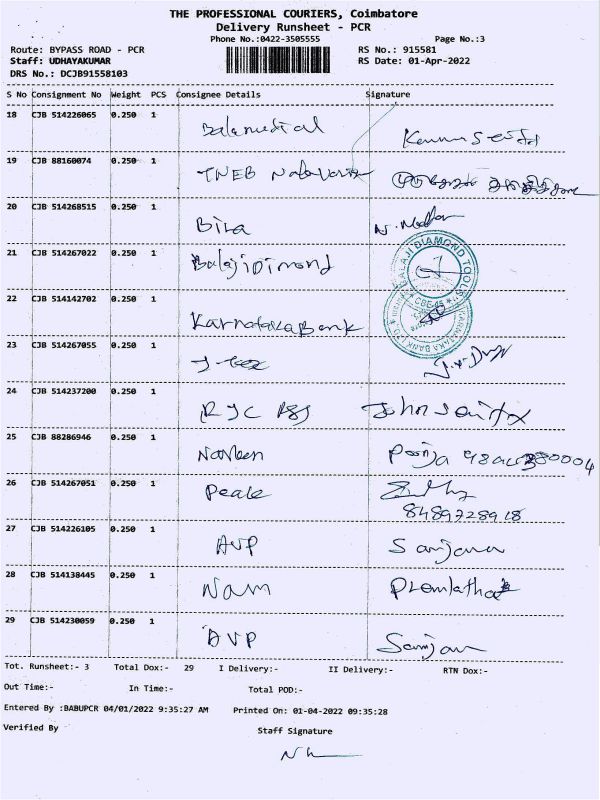 THE PROFESSIONAL COURIERS, Coimbatore
Delivery Runsheet - PCR
Phone No.:0422-3505555 Page No.:3
Route: BYPASS ROAD - PCR RS No.: 915581
Staff: UDHAYAKUMAR RS Date: 01-Apr-2022
DRS No.: DCJB91558103
S No Consignment No Weight PCS Consignee Details Signature
18 CJB 514226065 0.250 1
Balamedical
19 CJB 88160074 0.250 1
TNEB
20 CJB 514268515 0.250 1
Bira
21 CJB 514267022 0.250 1
BALAJI DIAMOND TOOLS
Balaji Dimond
22 CJB 514142702 0.250 1
CBE-45
Karnataka Bank
KARNATAKA BANK LTD
23 CJB 514267055 0.250 1
24 CJB 514237200 0.250 1
25 CJB 88286946 0.250 1
Naveen Pooja
26 CJB 514267051 0.250 1
Peale
8489728918
27 CJB 514226105 0.250 1
AVP Sanjana
28 CJB 514138445 0.250 1
Nam Premlatha
29 CJB 514230059 0.250 1
AVP Sanjan
Tot. Runsheet:- 3 Total Dox:- 29 I Delivery:- II Delivery:- RTN Dox:-
Out Time:- In Time:- Total POD:-
Entered By :BABUPCR 04/01/2022 9:35:27 AM Printed On: 01-04-2022 09:35:28
Verified By Staff Signature